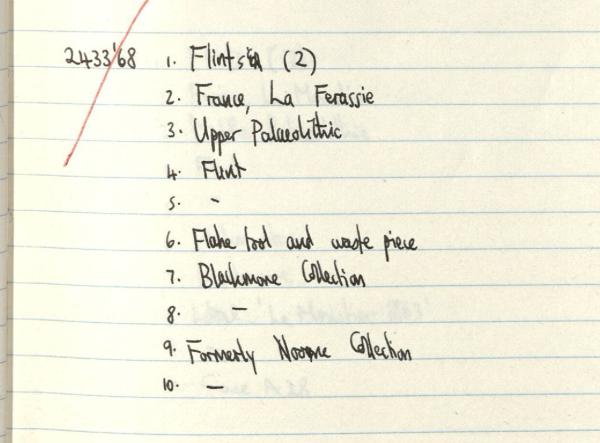 2433'68 1. Flints (2)
2. France, La Ferassie
3. Upper Palaeolithic
4. Flint
5. -
6. Flake tool and waste piece
7. Blackmore Collection
8. —
9. Formerly Collection
10. —